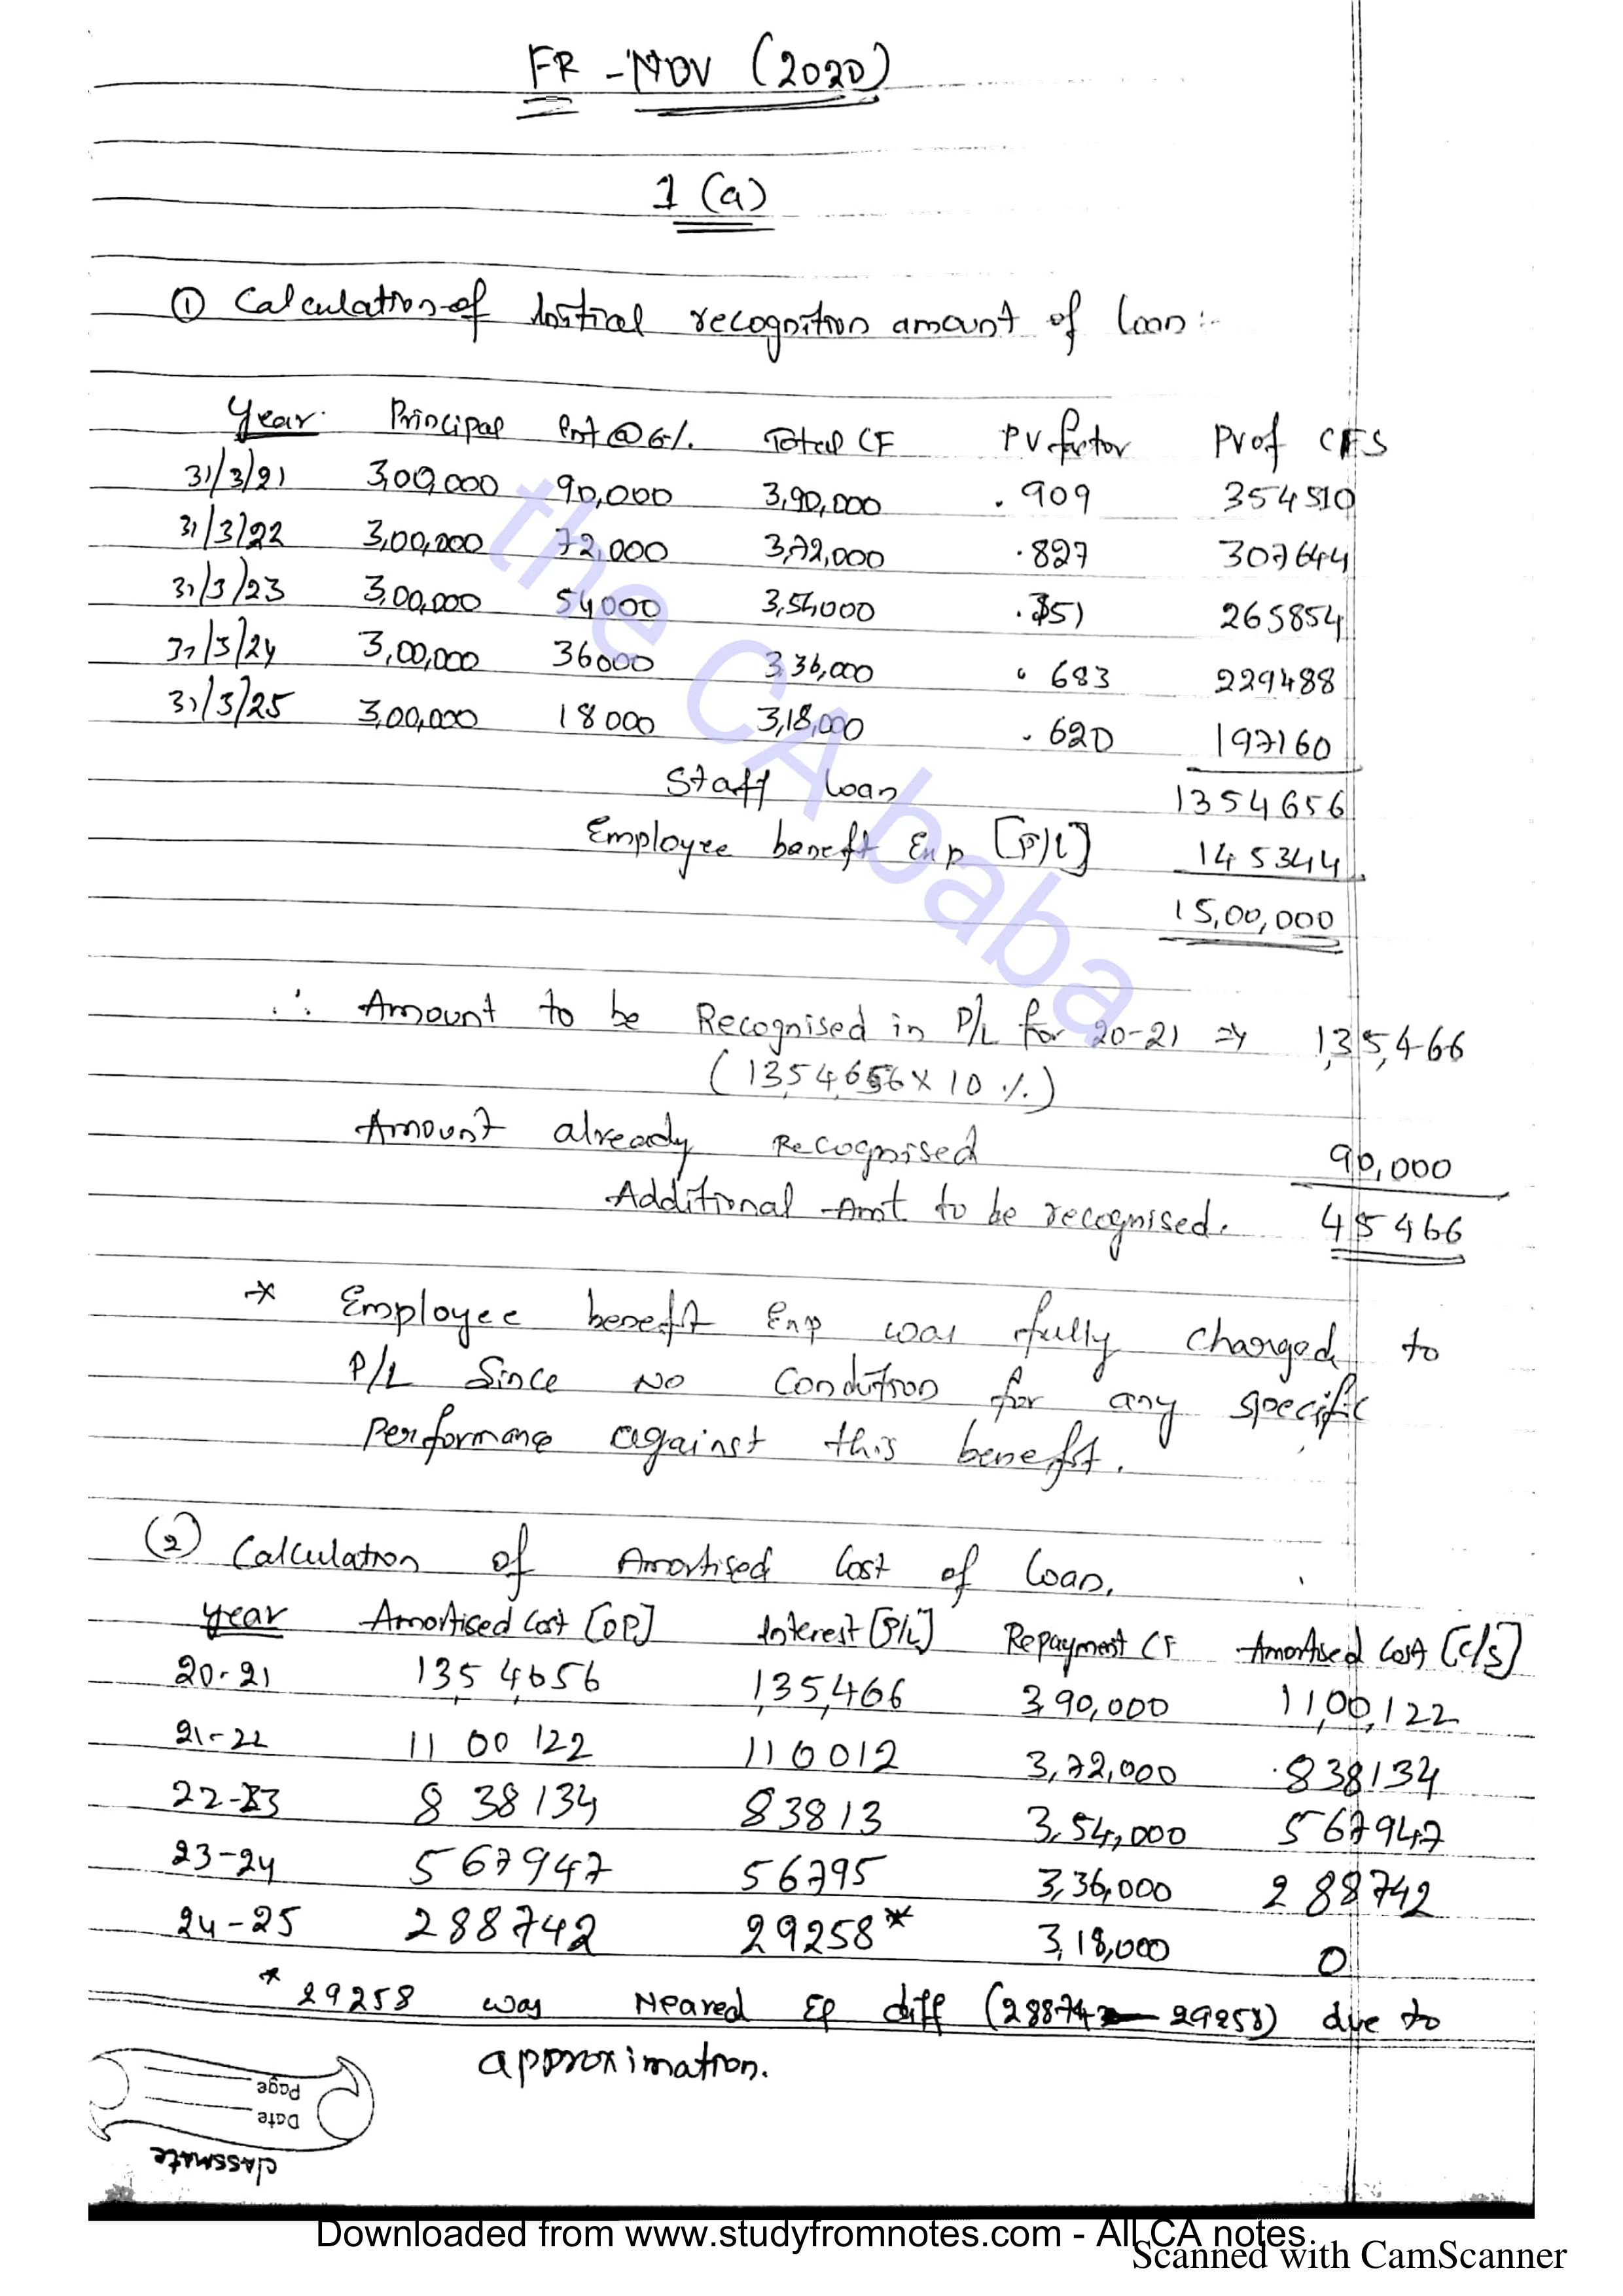 FR - NOV (2020)
1 (a)
① Calculation of Initial recognition amount of loan :-
Year Principal Int @ 6% Total CF PV factor PV of CFS
31/3/21 3,00,000 90,000 3,90,000 .909 354510
31/3/22 3,00,000 72,000 3,72,000 .827 307644
31/3/23 3,00,000 54000 3,54,000 .751 265854
31/3/24 3,00,000 36000 3,36,000 .683 229488
31/3/25 3,00,000 18000 3,18,000 .620 197160
Staff loan 1354656
Employee benefit Exp [P/L] 145344
15,00,000
∴ Amount to be Recognised in P/L for 20-21 ⇒ 1,35,466
(13,54,656 x 10%)
Amount already Recognised 90,000
Additional Amt to be recognised. 45466
* Employee benefit Exp was fully charged to
P/L Since No Condition for any specific
Performance against this benefit.
(2) Calculation of Amortised Cost of loan.
Year Amortised Cost [OP] Interest [P/L] Repayment CF Amortised Cost [C/S]
20-21 13,54,656 1,35,466 3,90,000 11,00,122
21-22 11 00 122 110012 3,72,000 838134
22-23 8 38 134 83813 3,54,000 567947
23-24 567947 56795 3,36,000 288742
24-25 288742 29258* 3,18,000 0
* 29258 was diff (28874 - 29258) due to
approximation.
Page
Date
classmate
the CA baba
Downloaded from www.studyfromnotes.com - All CA notes
Scanned with CamScanner